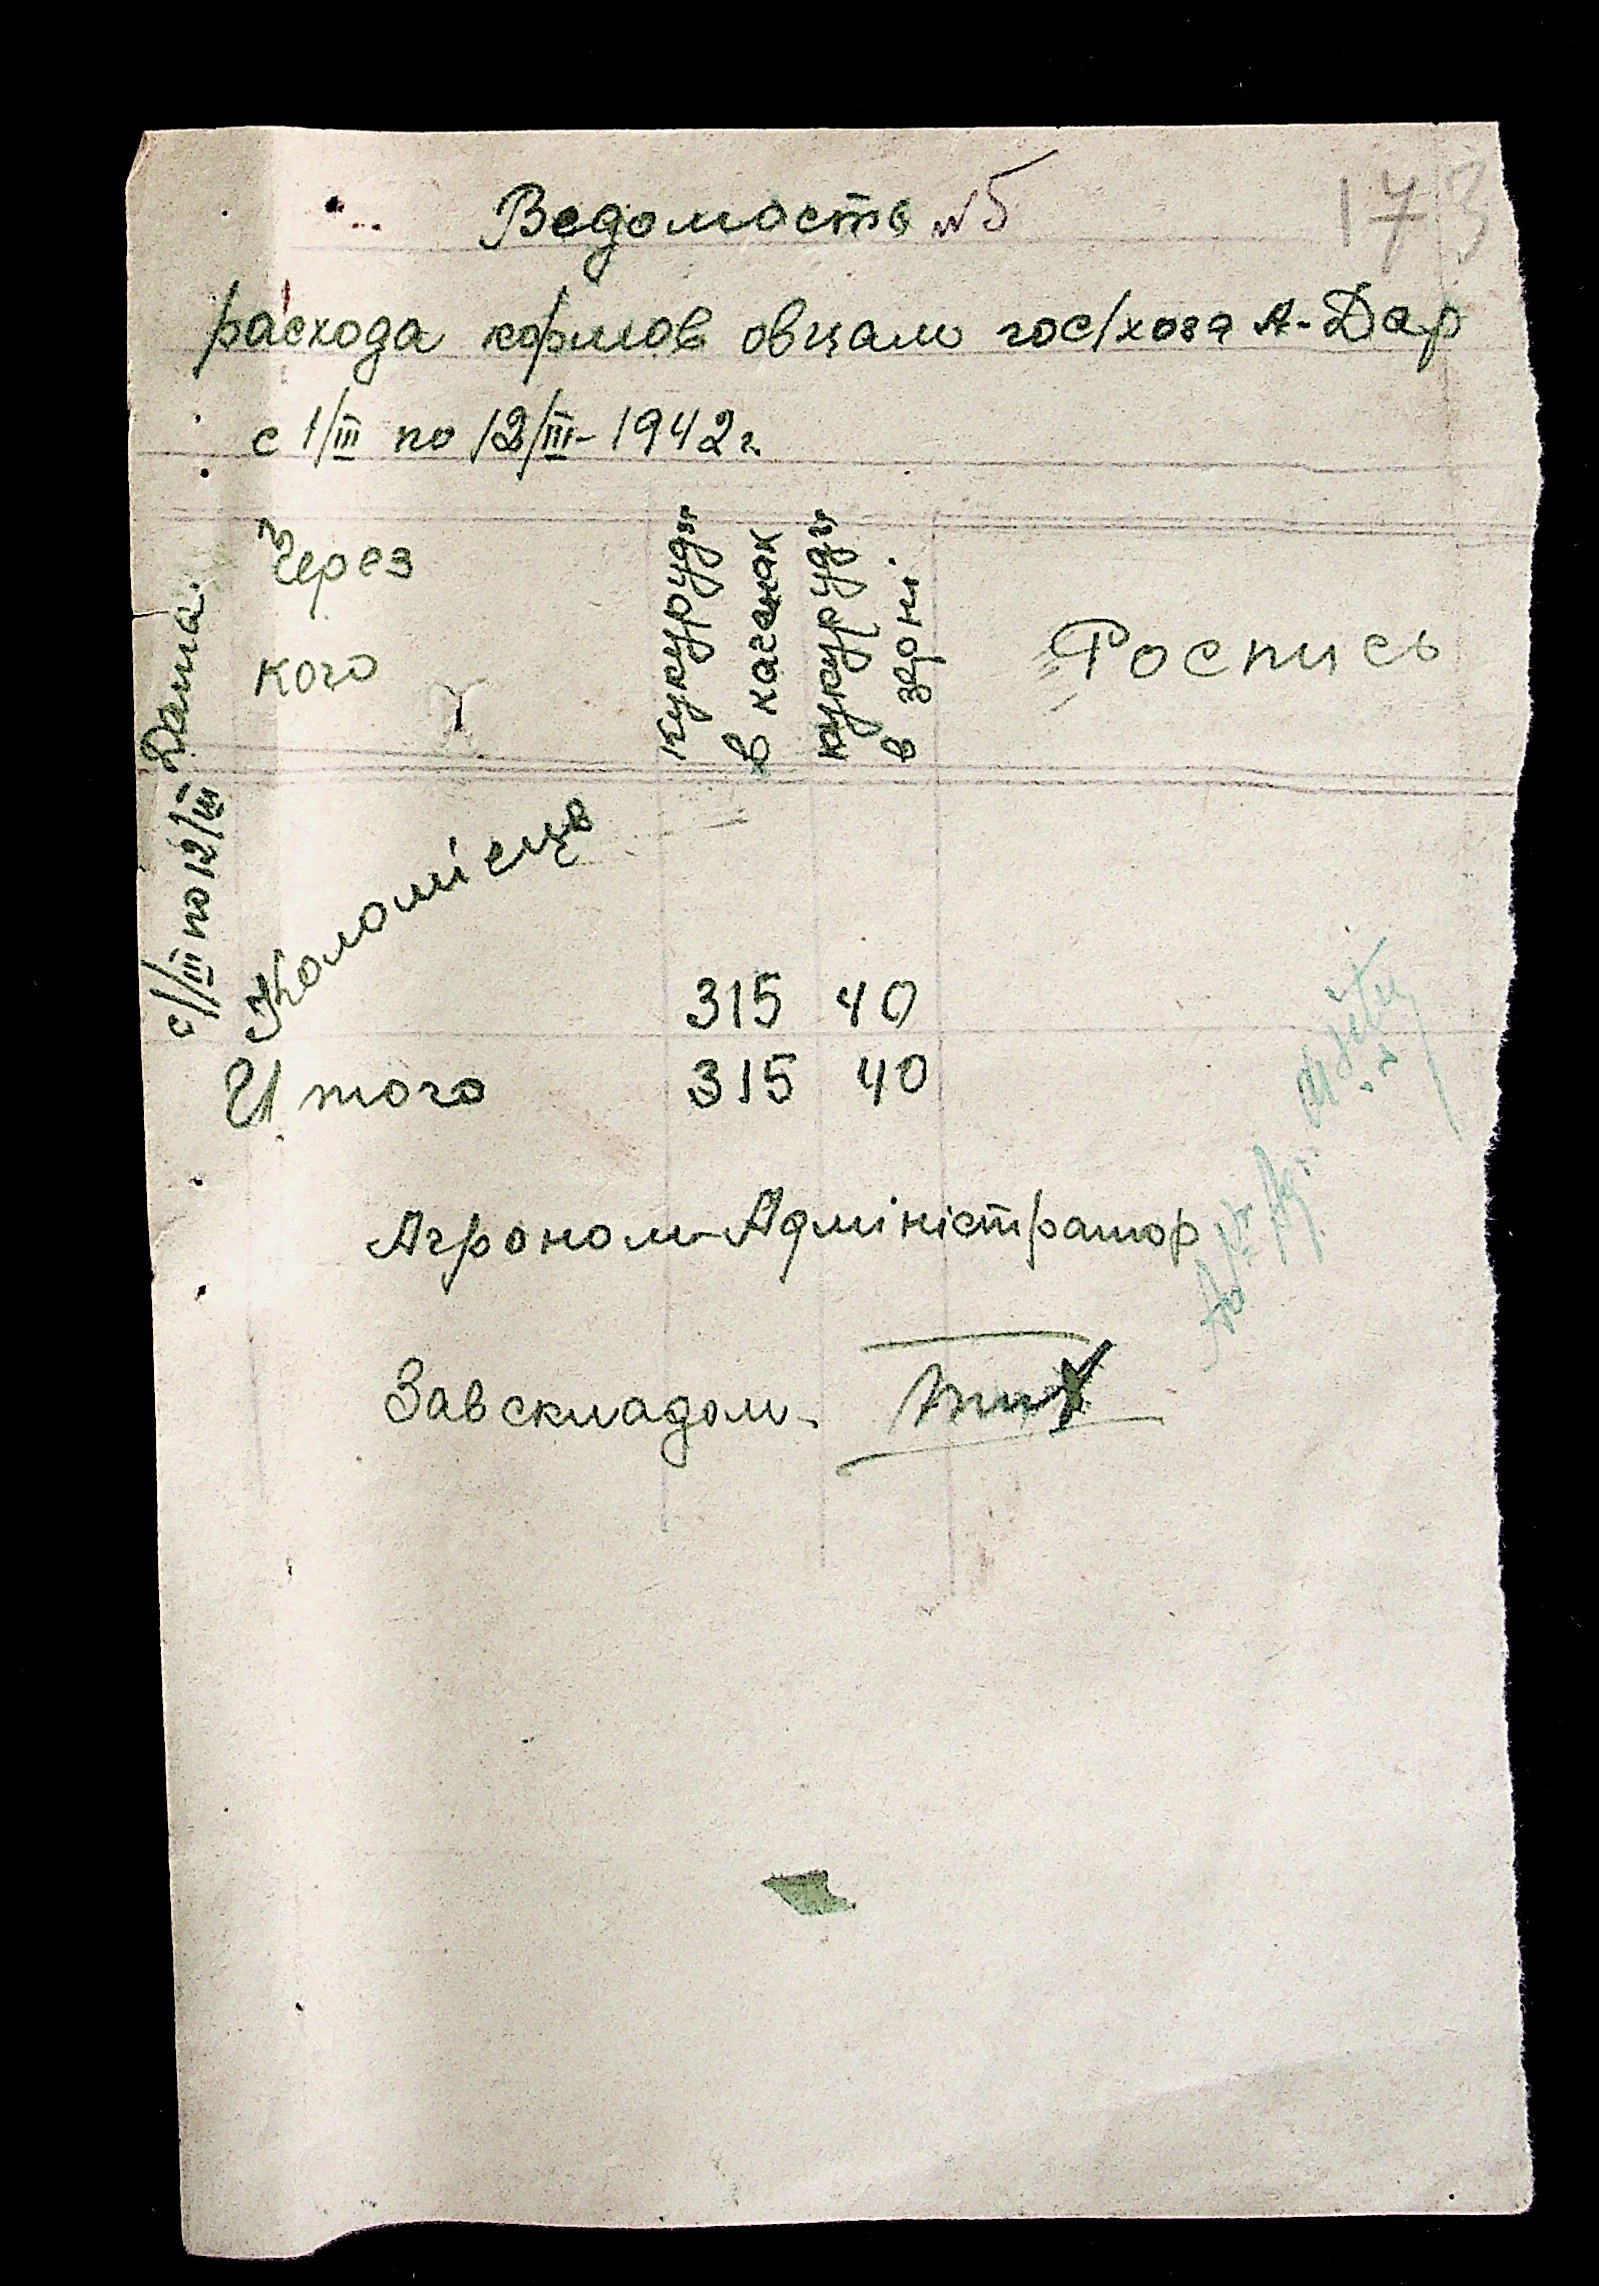 173
Ведомость №5
расхода кормов овцам гос/хоза А-Дар
с 1/III по 12/III-1942г.
Дата.
Через
кого
кукуруды
в качанак
кукуруды
в зерні.
Роспись
с 1/III по 12/III
Коломієць
315 40
Итого 315 40
Агроном-Адміністратор
Завскладом-